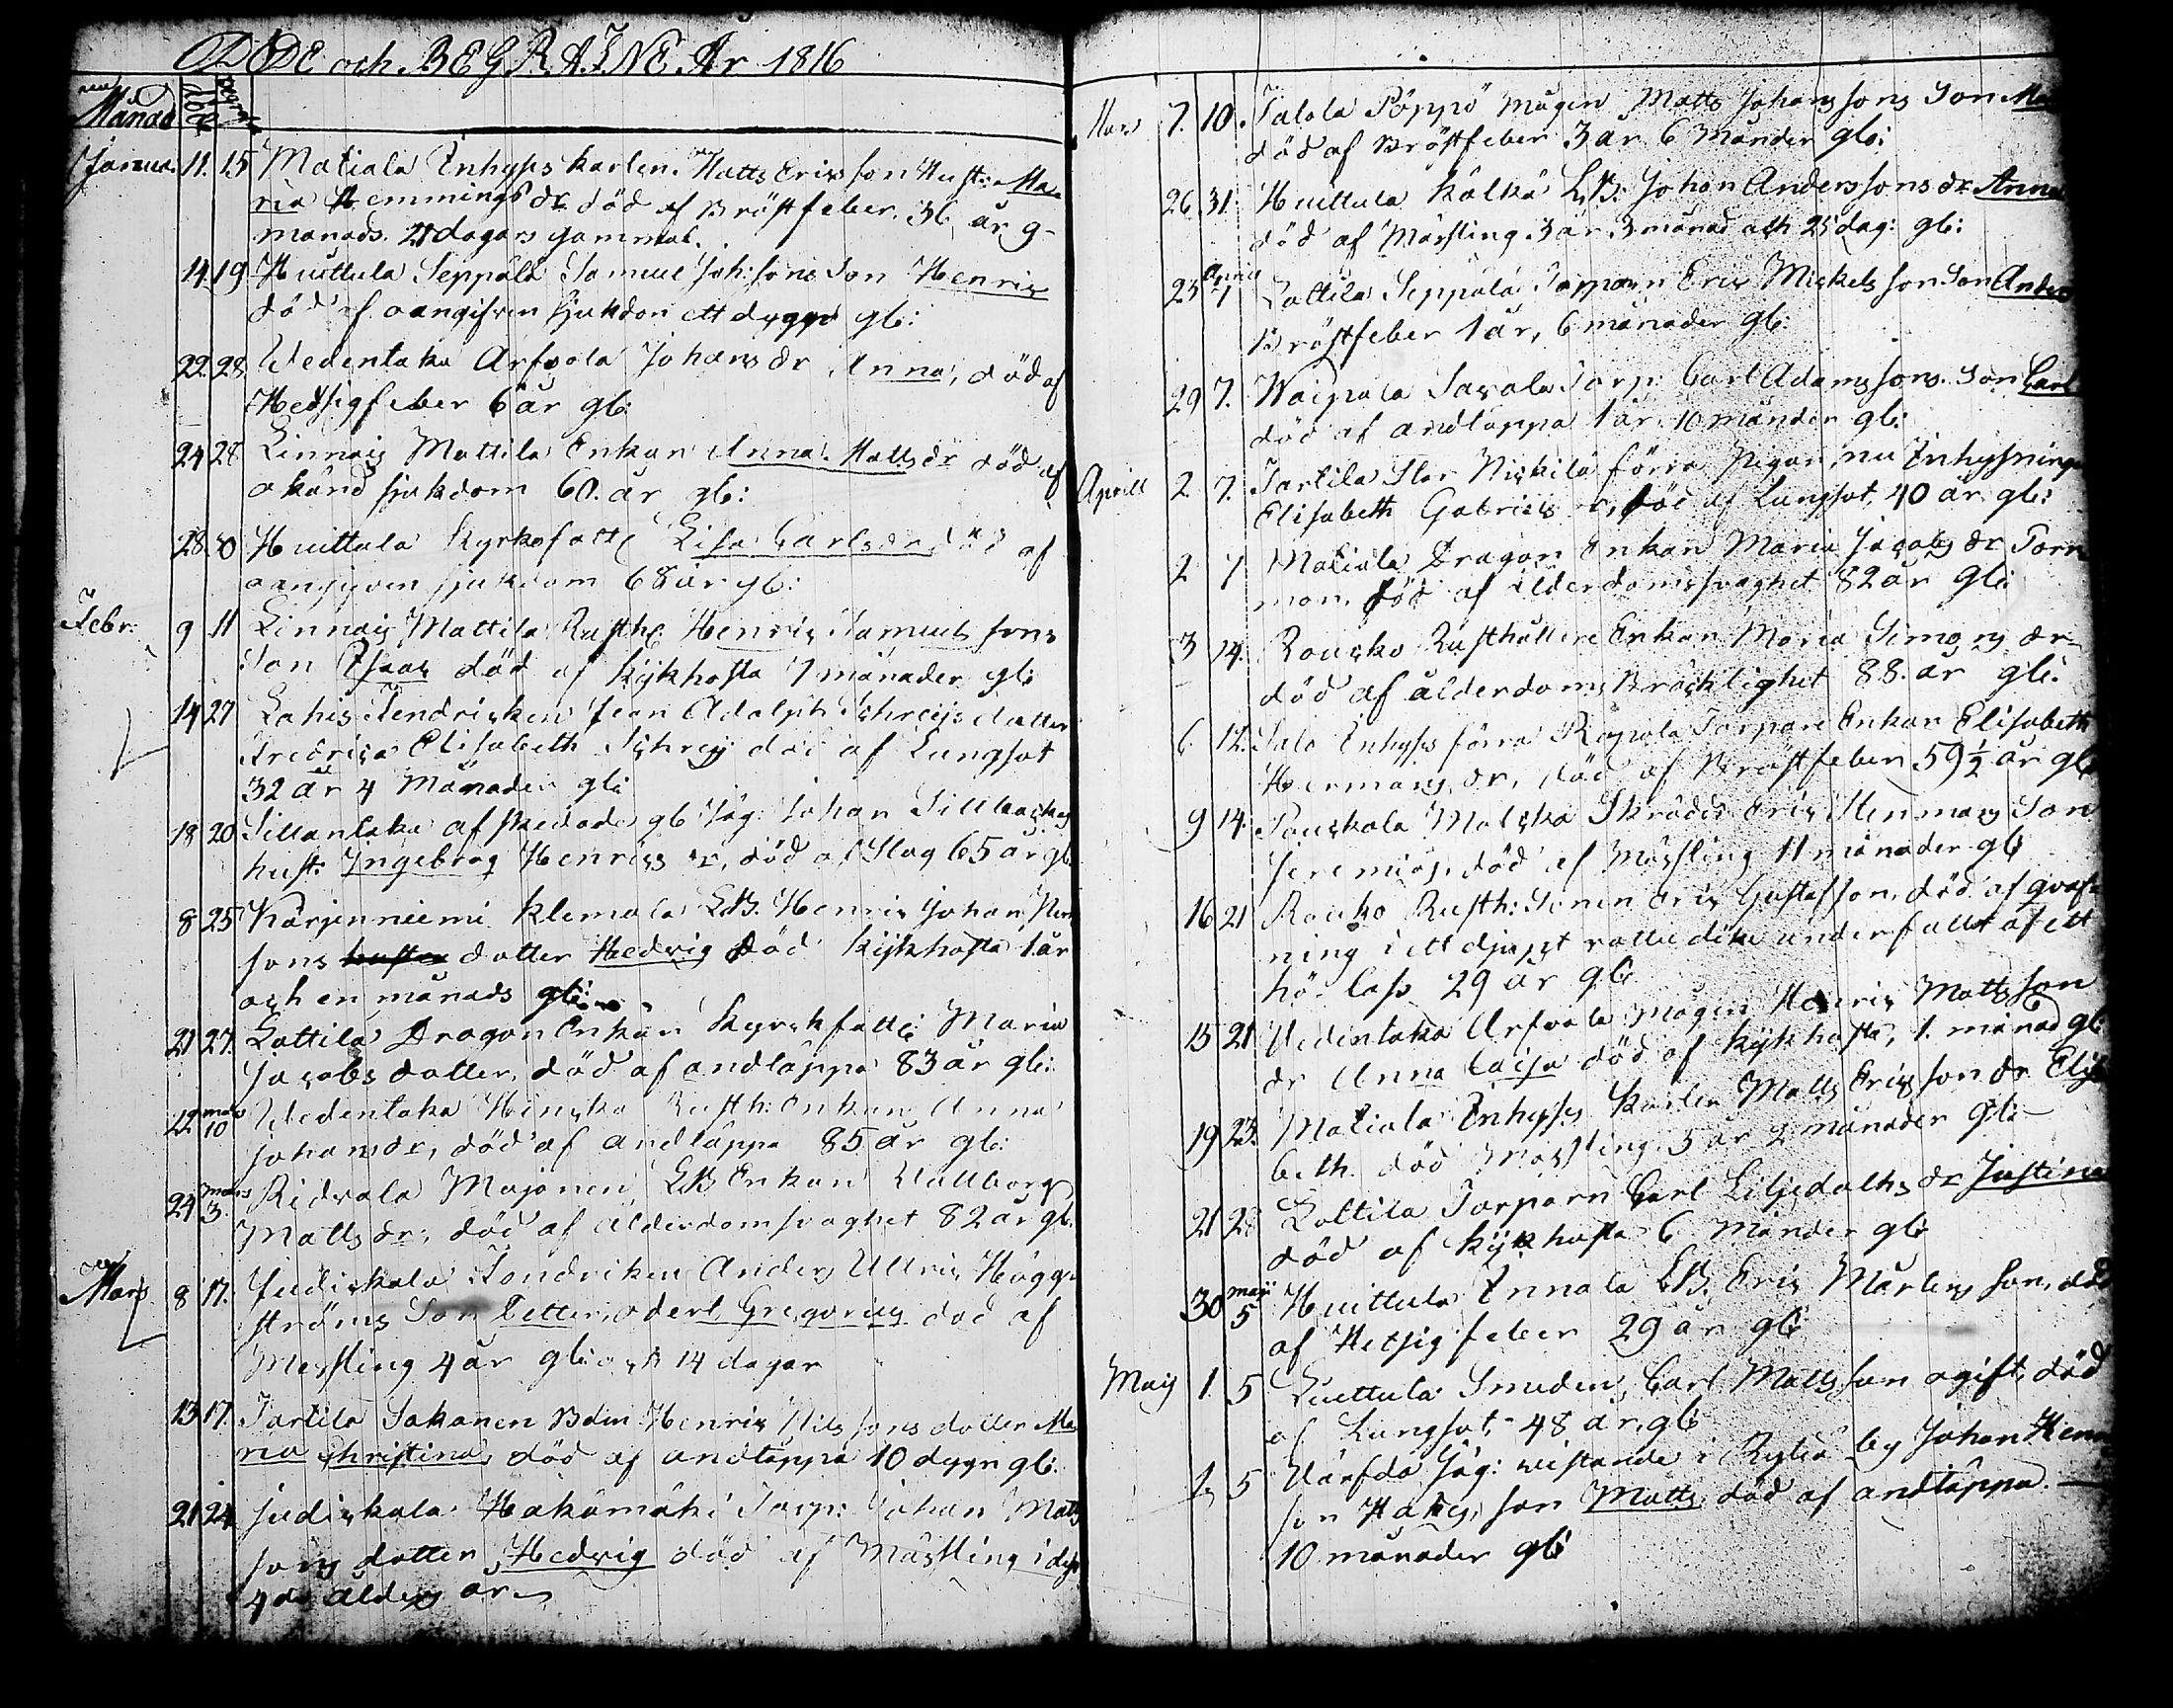 DÖDE och BEGRAFNE År 1816
Månad död begr:
Janua. 11. 15 Matiala Inhyses karlen Matts Ericssons Hust: Ma-
ria Hemmings dr död af Bröstfeber 36 år 9
månads 21 dagars gammal.
14. 19 Huittula Seppälä Samuel Joh:sons Son Henric
död af oangifven sjukdom ett dygn glt:
22. 28 Wedentaka Arfvola Johans dr Anna, död af
Hetsigfeber 6 år glt:
24 28 Linnais Mattila Enkan Anna Matts dr död af
okänd sjukdom 60 år glt:
28. 30 Huittula Kyrkofatt: Lisa Carls dr död af
oangifven sjukdom 68 år glt:
Febr: 9 11 Linnais Mattila Rusth: Henric Samuels sons
Son Isaac död af kykhosta 7 månader glt:
14 27 Lahis Fendricken Jean Adolph Schreijs dotter
Fredrica Elisabeth Schreij död af Lungsot
32 år 4 Månader glt:
18 20 Sillantaka afskedade gb Jäg: Johan Sillbackas
hust: Ingeborg Henrics dr, död af Slag 65 år glt:
8 25 Karjenniemi Klemola LB. Henric Johan
sons hustru dotter Hedvig död kykhosta 1 år
och en månads glt:
21 27. Lottila Dragon Enkan Kyrckfatt: Maria
Jacobs dotter, död af andtäppa 83 år glt:
22 mars 10 Wedentaka Heinicka Rusth: Enkan Anna
Johans dr, död af andtäppa 85 år glt:
24 mars 3. Ridvala Majanen LB Enkan Wallborg
Matts dr, död af Ålderdomsvaghet 82 år glt.
Mars 8 17. Judickala Fendriken Anders Ulric Hägg-
ströms Son Petter Adert Gregorius död af
Messling 4 år glt: och 14 dagar
13 17. Tartila Sakanen Bdm Henric Nils sons dotter Ma
ria Christina, död af andtäppa 10 dygn glt:
21 24 Judickala Hakamäki Torp: Johan Matts
sons dotter Hedvig död af Mässling i dess
4de ålders år
Mars 7. 10. Talola Pöppö mågen Matts Johans sons Son
död af Bröstfeber 3 år 6 Månder glt:
26. 31. Huittula Kälkä LB. Johan Anderssons dr Anna
död af Mässling 3 år 3 månad och 25 dag: glt:
25 April 7 Lottila Seppälä Torparen Eric Mickels son Son Anders
Bröstfeber 1 år, 6 månader glt:
29 7. Waipala Savala Torp: Carl Adams sons Son Carl
död af andtäppa 1 år 10 månder glt:
Aprill 2 7. Tartila Stor Nickilä förra Pigan nu Inhysning
Elisabeth Gabriels dr, död af Lungsot, 40 år glt:
2 7 Matiala Dragon Enkan Maria Jacobs dr Forr
man. död af ålderdomsvaghet 82 år glt:
3 14. Roucko Rusthållare Enkan Maria Simons dr
död af ålderdoms Bräcklighet 88 år glt:
6 12. Salo Inhyses förra Rapola Torpare Enkan Elisabeth
Hermans dr, död af Bröstfeber 59 1/2 år glt
9 14. Pouckola Malska Skrädd: Eric Henmans Son
Jeremias, död af Mässling 11 månader glt
16 21 Roucko Rusth: Sonen Eric Gustafsson, död af qväf-
ning i ett djupt rallu dike underfallet af ett
hö-lass 29 år glt:
15 21 Wedentaka Arfvola mågen Henric Matts son
dr Anna Caisa död af kykhosta, 1. månad glt:
19 23. Matiala Inhyses Karlen Matts Erics son dr Elisa
beth död Mässling 5 år 2 månader glt:
21 28 Lottila Torparn Carl Liljedahls dr Justina
död af kykhosta 6 Månder glt
30 maji 5 Huittula Innala LB. Eric Mårtens son, död
af Hetsigfeber 29 år glt
Maij 1. 5 Luttula Smeden, Carl Matts son ogift, död
af Lungsot 48 år glt
1. 5 Wärfda Jäg: vistande i Rytiö by Johan Hen
son Hakes, son Matts död af andtäppa
10 månader glt